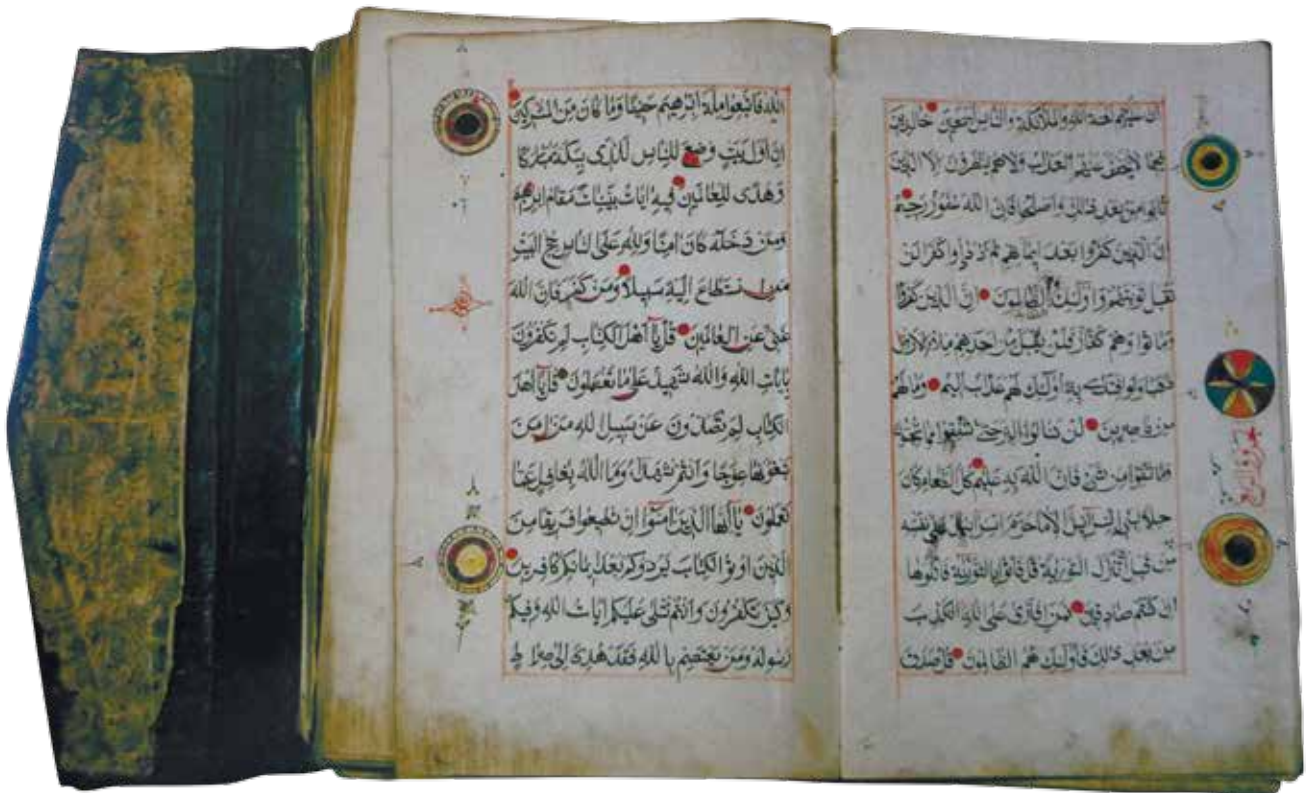 ان عليهم لعنة الله والملائكة والناس اجمعين خالدين
فيها لا يخفف عنهم العذاب ولا هم ينظرون الا الذين
تابوا من بعد ذلك واصلحوا فان الله غفور رحيم
ان الذين كفروا بعد ايمانهم ثم ازدادوا كفرا لن
تقبل توبتهم واولئك الظالمون ان الذين كفروا
وماتوا وهم كفار فلن يقبل من احدهم ملء الارض
ذهبا ولو افتدى به اولئك لهم عذاب اليم وما لهم
من ناصرين لن تنالوا البر حتى تنفقوا مما تحبون
وما تنفقوا من شئ فان الله به عليم كل الطعام كان
حلا لبني اسرائيل الا ما حرم اسرائيل على نفسه
من قبل ان تنزل التورية قل فاتوا بالتورية فاتلوها
ان كنتم صادقين فمن افترى على الله الكذب
من بعد ذلك فاولئك هم الظالمون قل صدق
الله فاتبعوا ملة ابرهيم حنيفا وما كان من المشركين
ان اول بيت وضع للناس للذي ببكة مباركا
وهدى للعالمين فيه ايات بينات مقام ابرهيم
ومن دخله كان امنا ولله على الناس حج البيت
من استطاع اليه سبيلا ومن كفر فان الله
غني عن العالمين قل يا اهل الكتاب لم تكفرون
بايات الله والله شهيد على ما تعملون قل يا اهل
الكتاب لم تصدون عن سبيل الله من امن
تبغونها عوجا وانتم شهداء وما الله بغافل عما
تعملون يا ايها الذين امنوا ان تطيعوا فريقا من
الذين اوتوا الكتاب يردوكم بعد ايمانكم كافرين
وكيف تكفرون وانتم تتلى عليكم ايات الله وفيكم
رسوله ومن يعتصم بالله فقد هدى الى صراط